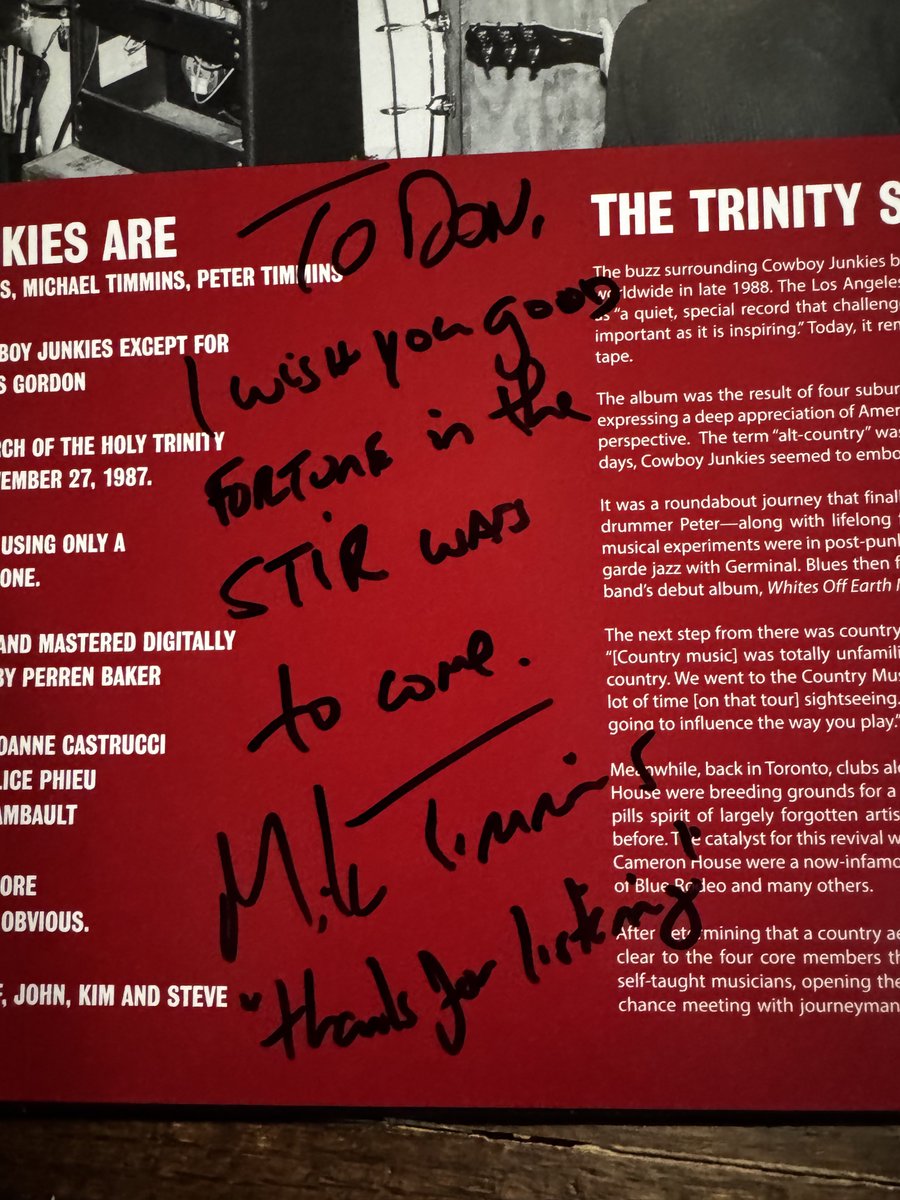 KIES ARE
S, MICHAEL TIMMINS, PETER TIMMINS
BOY JUNKIES EXCEPT FOR
S GORDON
RCH OF THE HOLY TRINITY
EMBER 27, 1987.
USING ONLY A
ONE.
AND MASTERED DIGITALLY
BY PERREN BAKER
OANNE CASTRUCCI
LICE PHIEU
AMBAULT
ORE
OBVIOUS.
F, JOHN, KIM AND STEVE
TO DON,
I WISH you good
FORTUNE in the
STIR WARS
to come.
Mike Timmins
"thanks for listening!
THE TRINITY S
The buzz surrounding Cowboy Junkies b
worldwide in late 1988. The Los Angeles
as "a quiet, special record that challenge
important as it is inspiring." Today, it rem
tape.
The album was the result of four subur
expressing a deep appreciation of Amer
perspective. The term "alt-country" was
days, Cowboy Junkies seemed to embo
It was a roundabout journey that finall
drummer Peter—along with lifelong
musical experiments were in post-punk
garde jazz with Germinal. Blues then f
band's debut album, Whites Off Earth N
The next step from there was country
"[Country music] was totally unfamili
country. We went to the Country Mus
lot of time [on that tour] sightseeing.
going to influence the way you play."
Meanwhile, back in Toronto, clubs al
House were breeding grounds for a
pills spirit of largely forgotten artis
before. The catalyst for this revival w
Cameron House were a now-infamo
of Blue Rodeo and many others.
After determining that a country ae
clear to the four core members th
self-taught musicians, opening the
chance meeting with journeyman